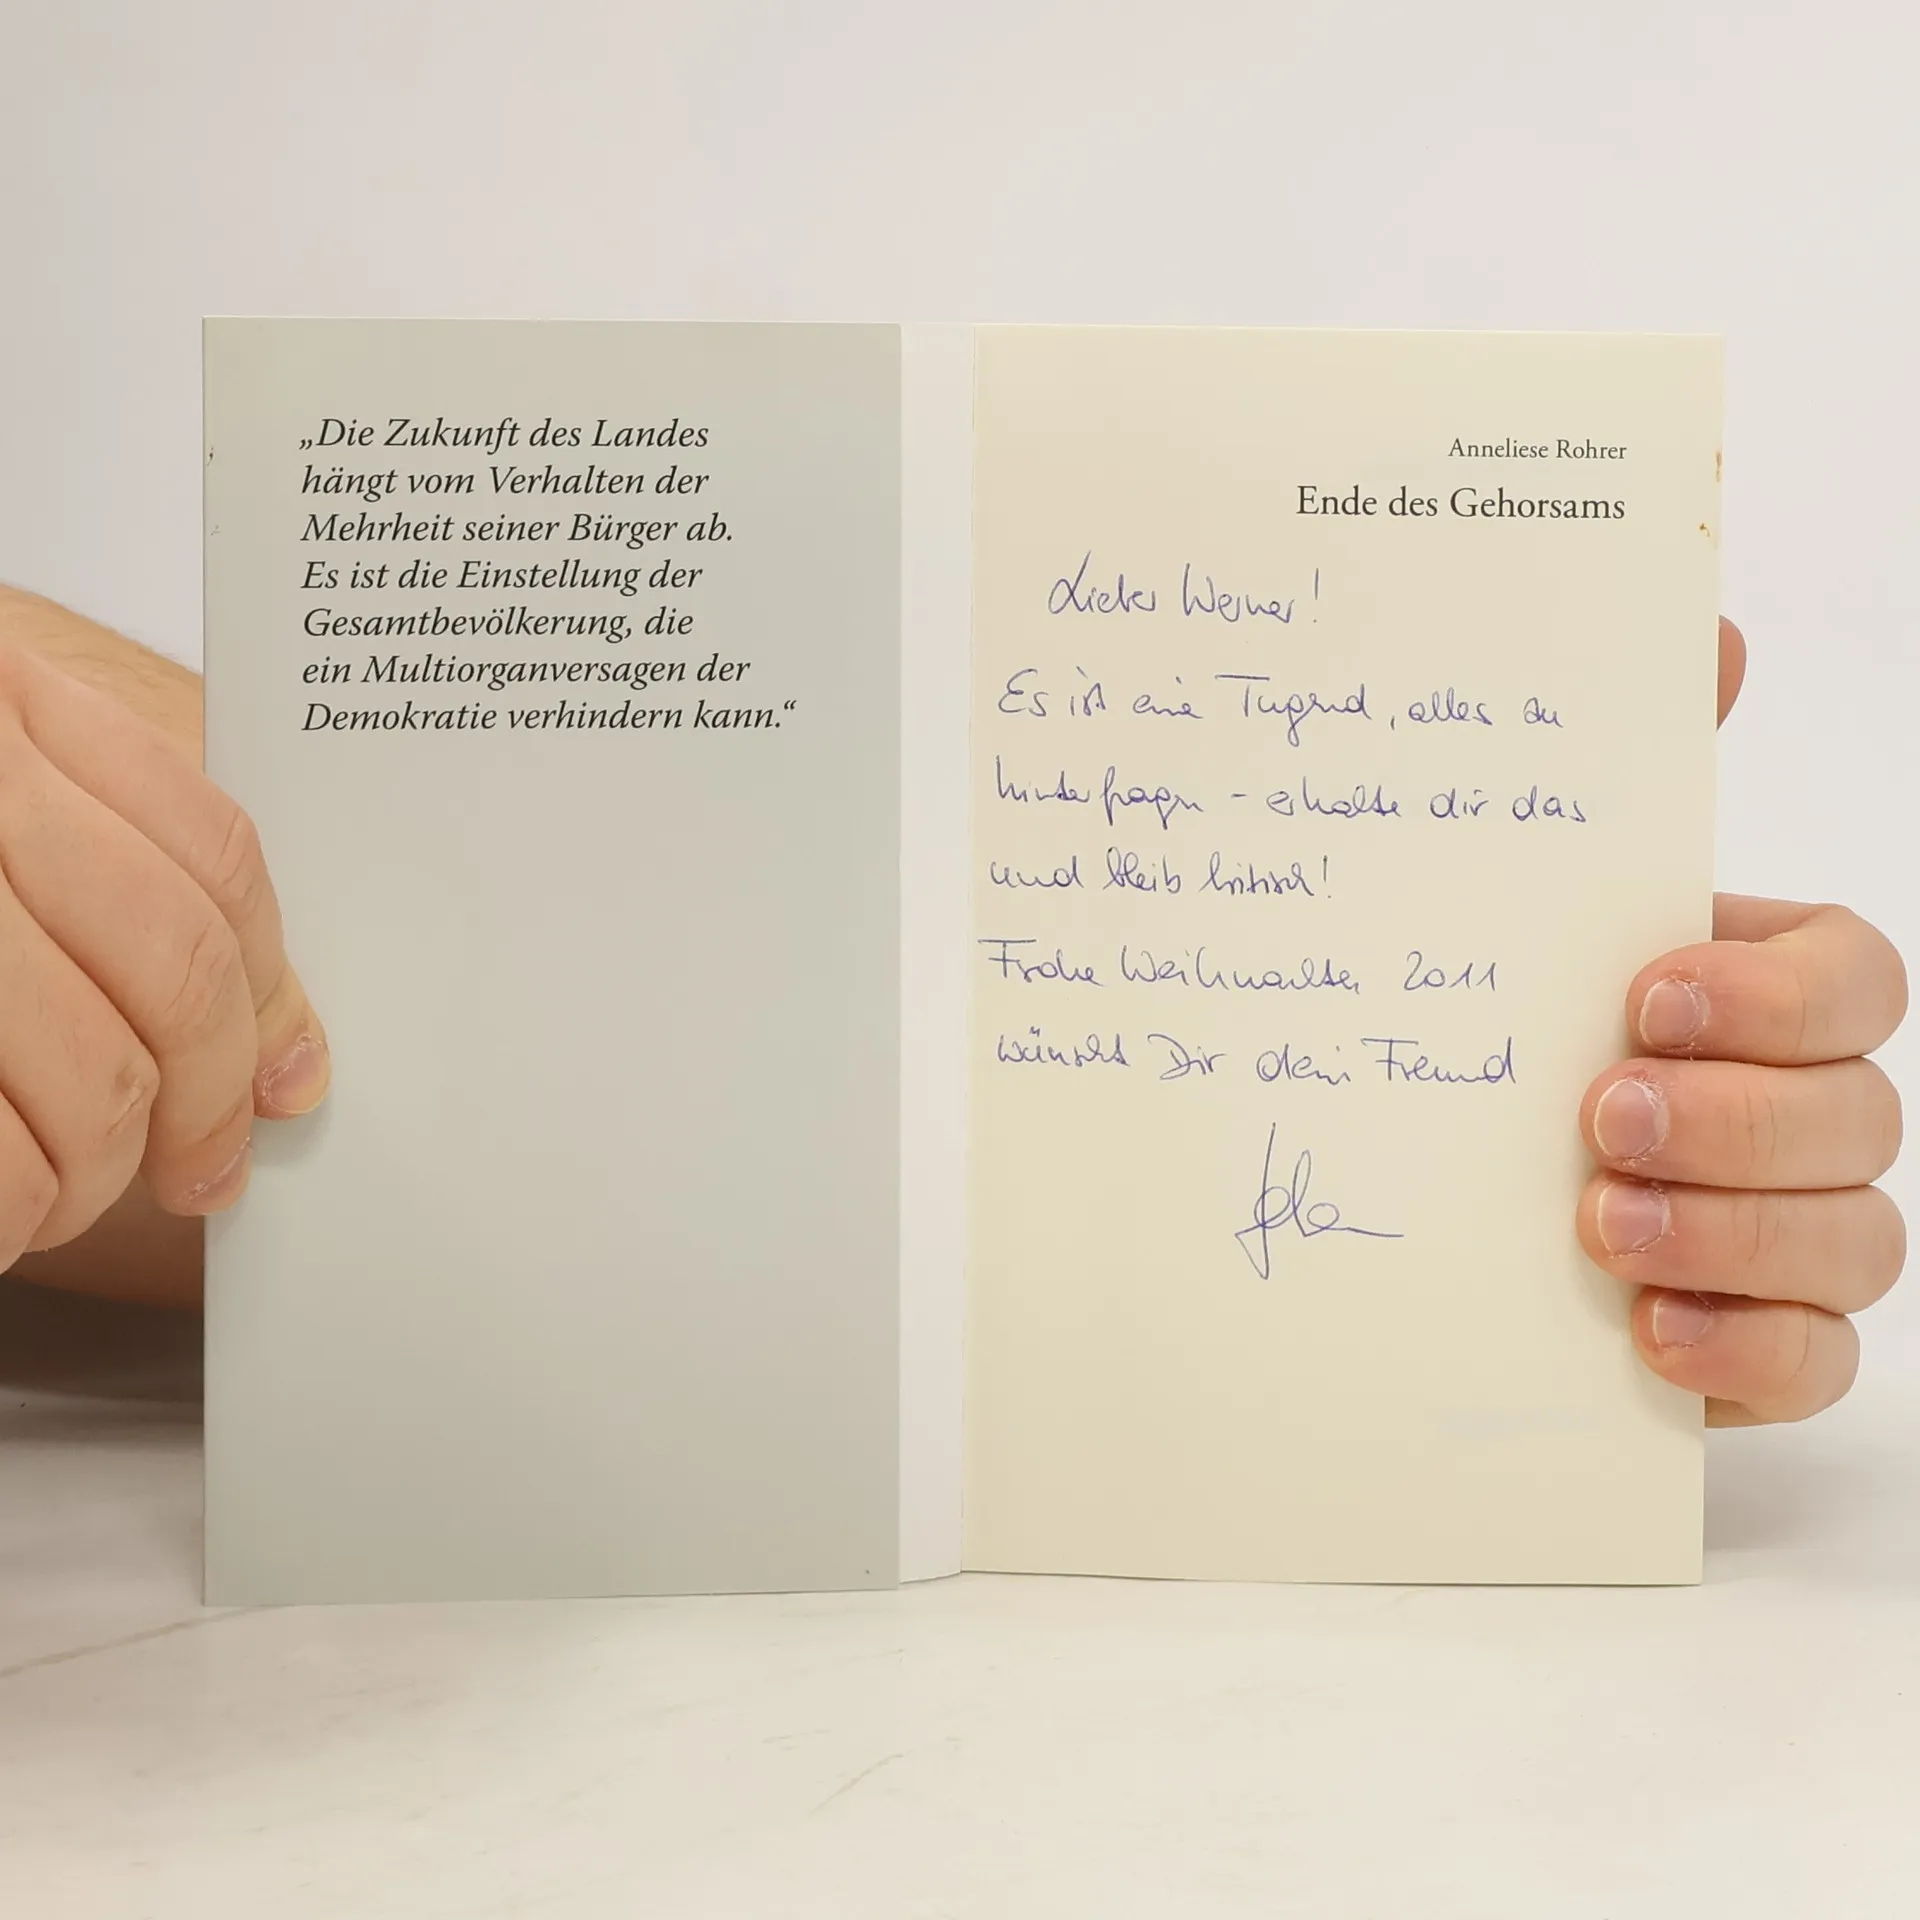 „Die Zukunft des Landes
hängt vom Verhalten der
Mehrheit seiner Bürger ab.
Es ist die Einstellung der
Gesamtbevölkerung, die
ein Multiorganversagen der
Demokratie verhindern kann.“
Anneliese Rohrer
Ende des Gehorsams
Lieber Werner!
Es ist eine Tugend, alles zu
hinterfragen - erhalte dir das
und bleib kritisch!
Frohe Weihnachten 2011
wünscht Dir dein Freund